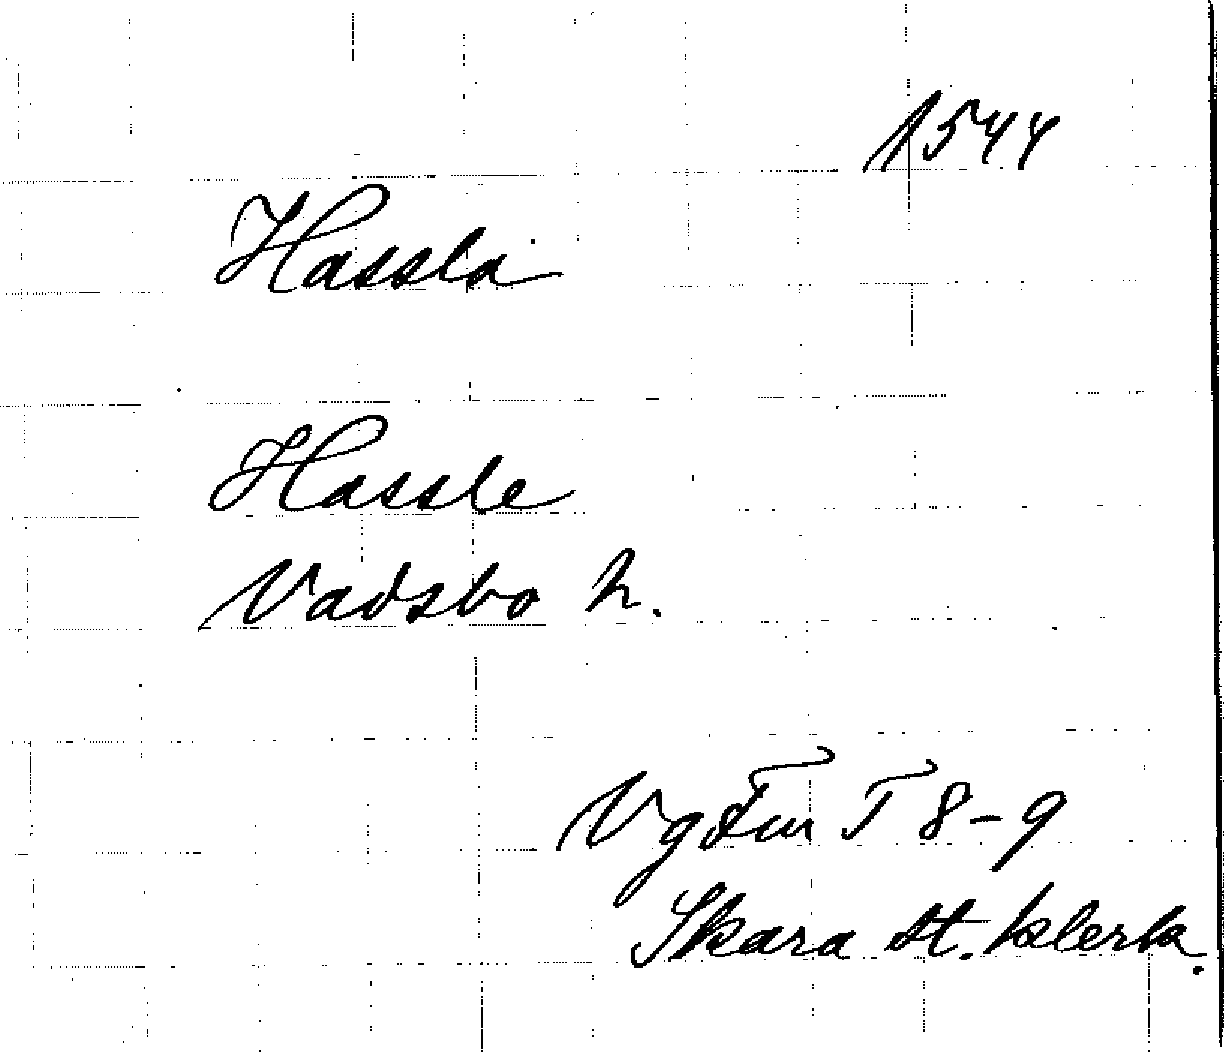 1544
Hassla
Hassle
Vadsbo h.
Vg Fur T 8-9
Skara st. klerk.